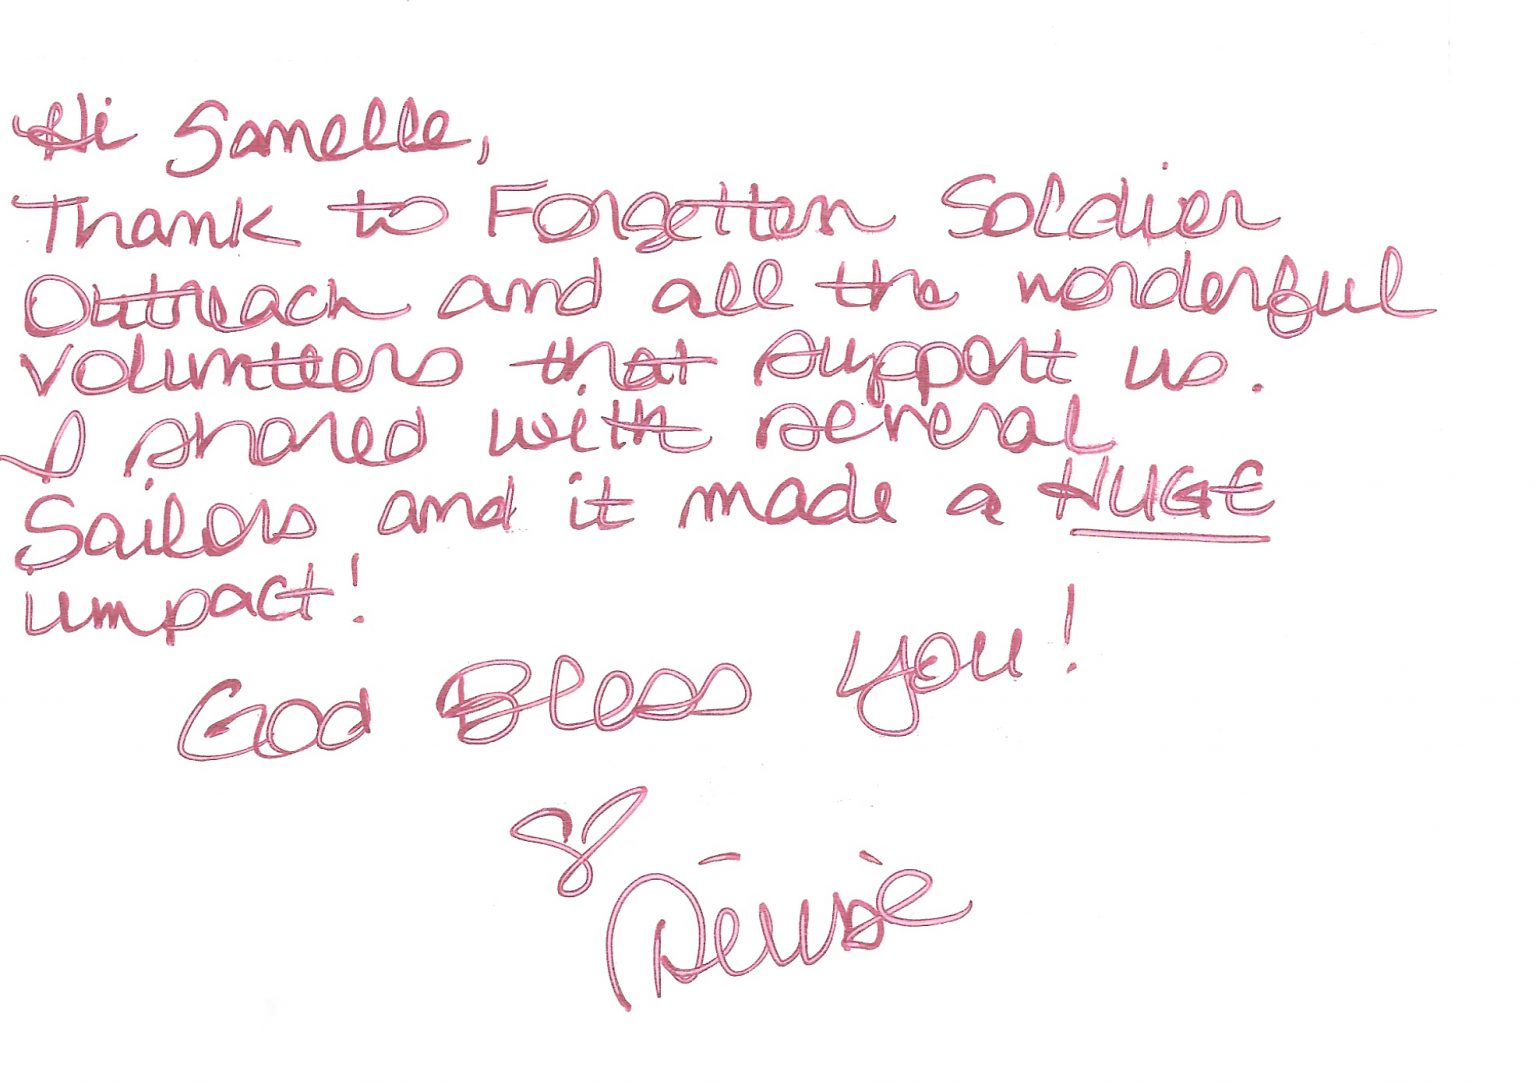 Hi Samelle,
Thank to Forgotten Soldier
Outreach and all the wonderful
volunteers that support us.
I shared with several
Sailors and it made a HUGE
impact!
God Bless you!
Denise